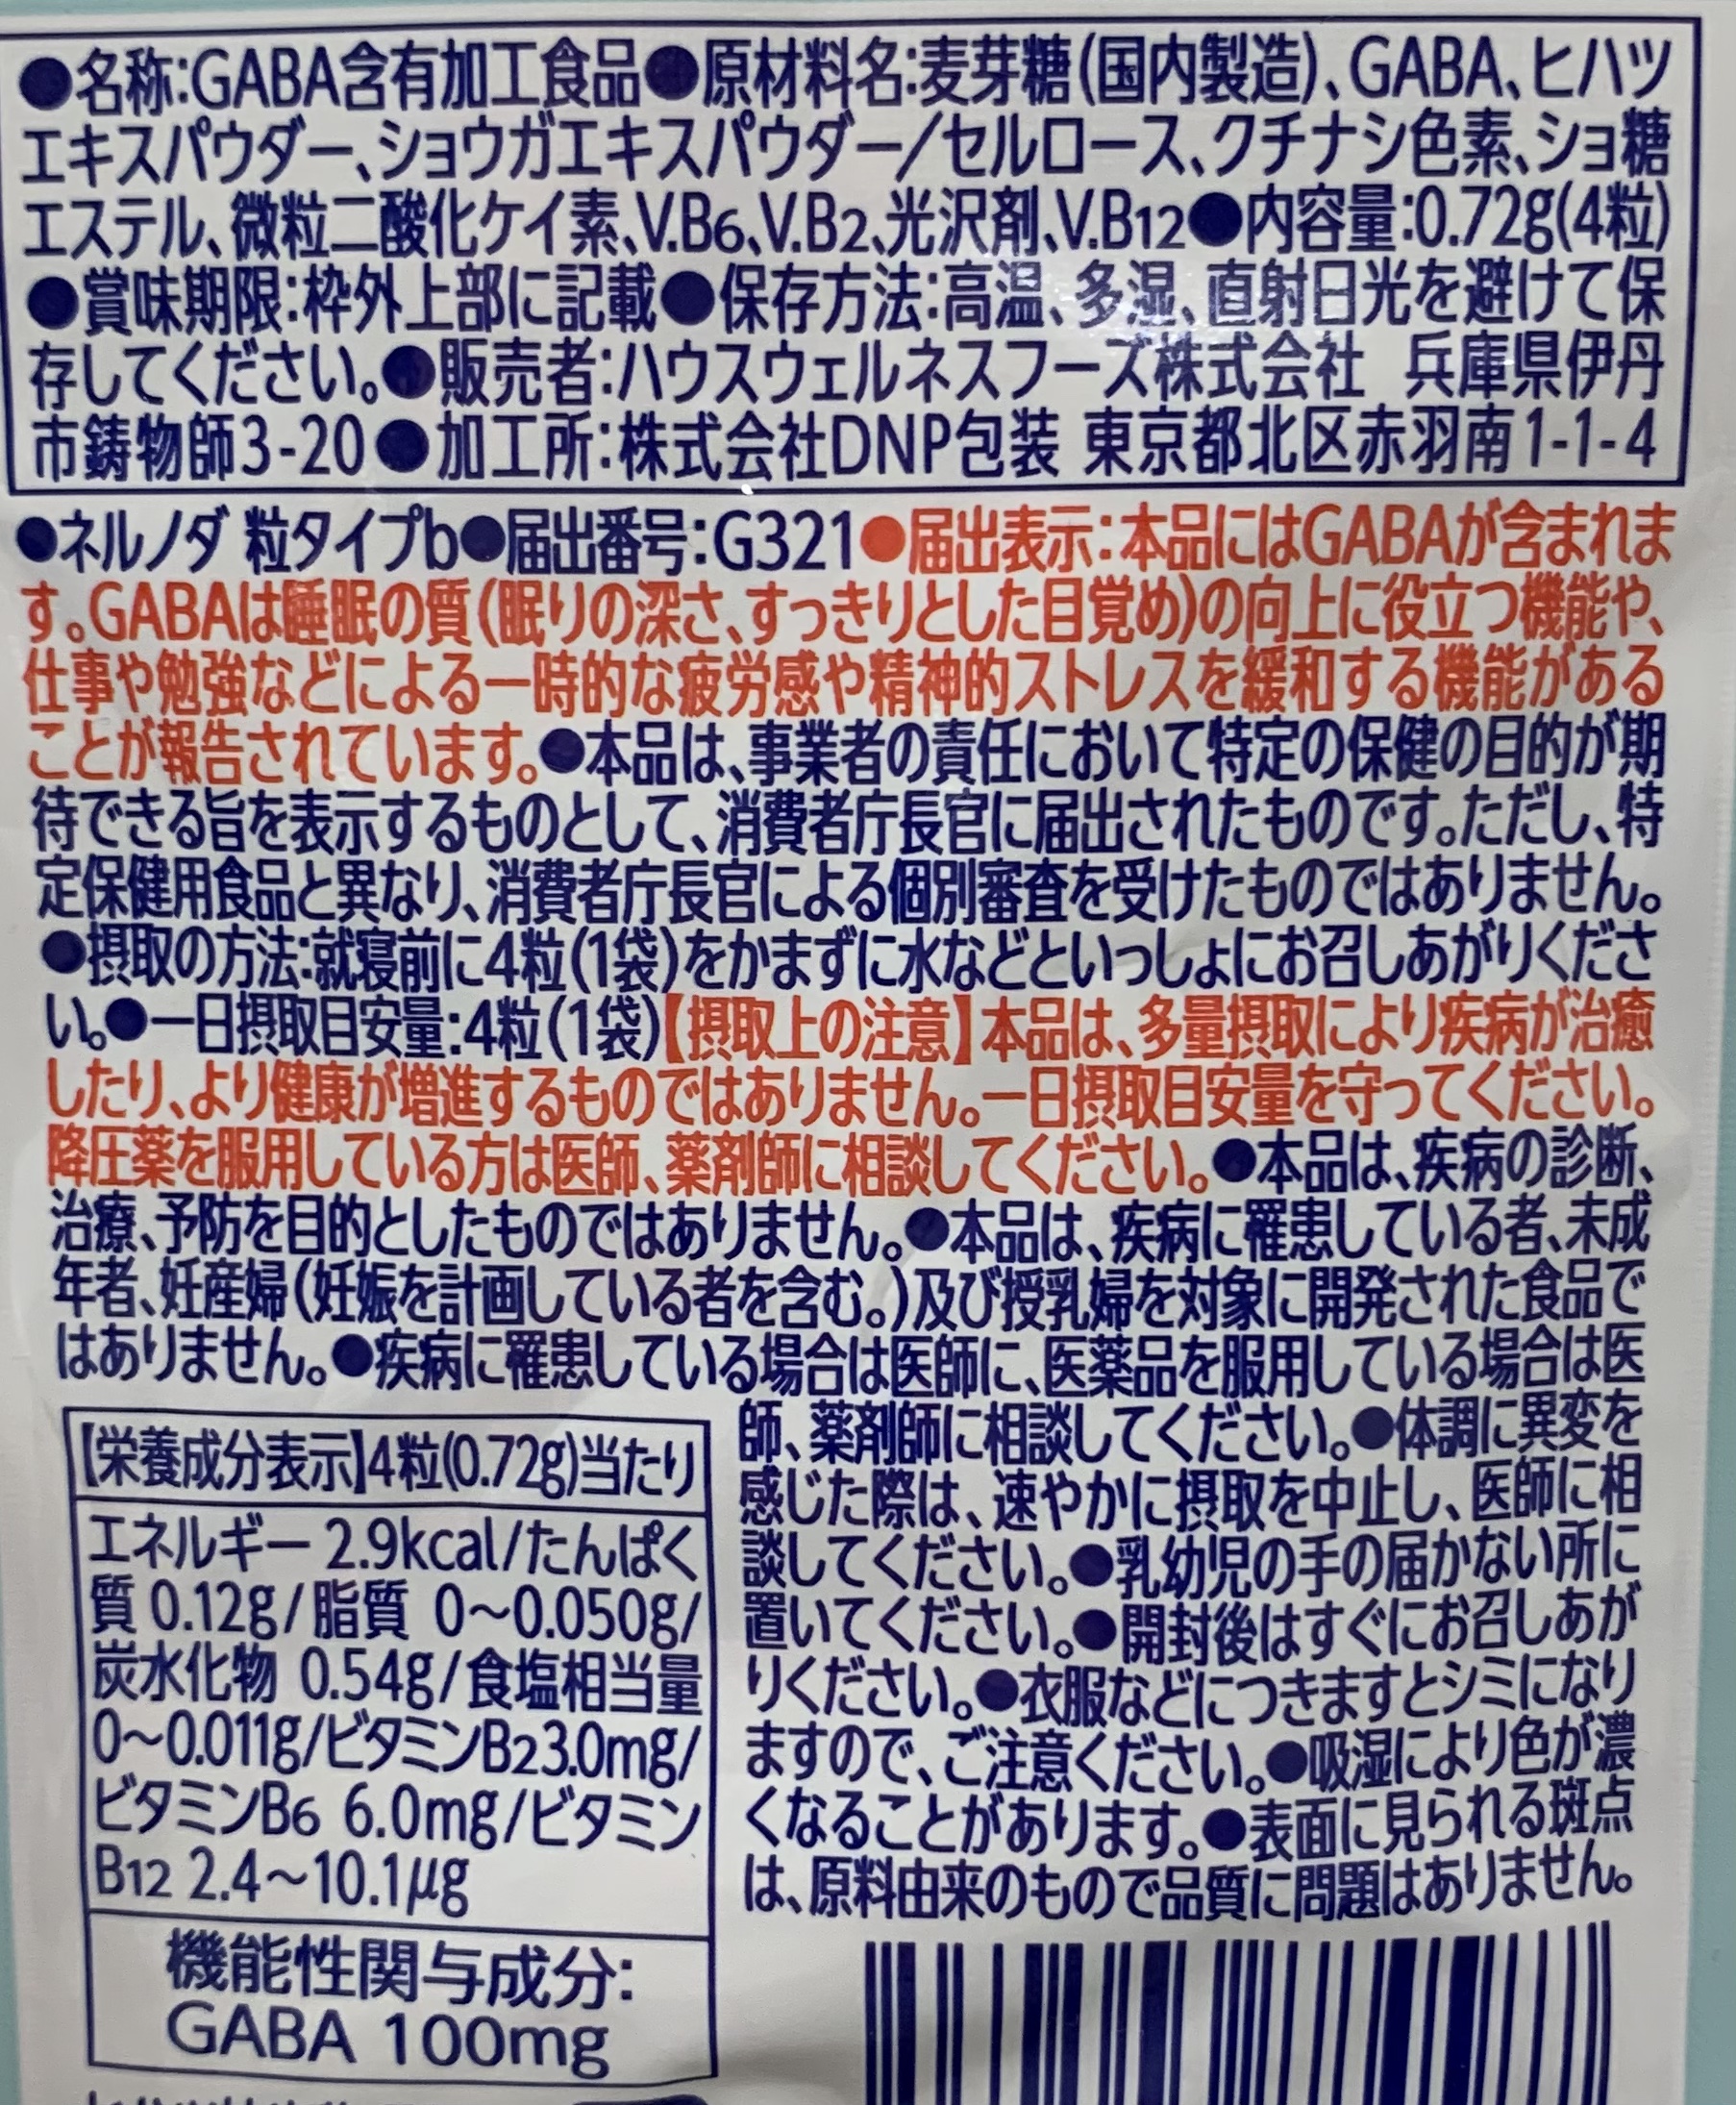 ●名称:GABA含有加工食品●原材料名:麦芽糖(国内製造)、GABA、ヒハツ
エキスパウダー、ショウガエキスパウダー/セルロース、クチナシ色素、ショ糖
エステル、微粒二酸化ケイ素、V.B6、V.B2、光沢剤、V.B12●内容量:0.72g(4粒)
●賞味期限:枠外上部に記載●保存方法:高温、多湿、直射日光を避けて保
存してください。●販売者:ハウスウェルネスフーズ株式会社 兵庫県伊丹
市鋳物師3-20●加工所:株式会社DNP包装 東京都北区赤羽南1-1-4
●ネルノダ 粒タイプb●届出番号:G321●届出表示:本品にはGABAが含まれま
す。GABAは睡眠の質(眠りの深さ、すっきりとした目覚め)の向上に役立つ機能や、
仕事や勉強などによる一時的な疲労感や精神的ストレスを緩和する機能がある
ことが報告されています。●本品は、事業者の責任において特定の保健の目的が期
待できる旨を表示するものとして、消費者庁長官に届出されたものです。ただし、特
定保健用食品と異なり、消費者庁長官による個別審査を受けたものではありません。
●摂取の方法:就寝前に4粒(1袋)をかまずに水などといっしょにお召しあがりくださ
い。●一日摂取目安量:4粒(1袋)【摂取上の注意】本品は、多量摂取により疾病が治癒
したり、より健康が増進するものではありません。一日摂取目安量を守ってください。
降圧薬を服用している方は医師、薬剤師に相談してください。●本品は、疾病の診断、
治療、予防を目的としたものではありません。●本品は、疾病に罹患している者、未成
年者、妊産婦(妊娠を計画している者を含む。)及び授乳婦を対象に開発された食品で
はありません。●疾病に罹患している場合は医師に、医薬品を服用している場合は医
師、薬剤師に相談してください。●体調に異変を
感じた際は、速やかに摂取を中止し、医師に相
談してください。●乳幼児の手の届かない所に
置いてください。●開封後はすぐにお召しあが
りください。●衣服などにつきますとシミになり
ますので、ご注意ください。●吸湿により色が濃
くなることがあります。●表面に見られる斑点
は、原料由来のもので品質に問題はありません。
【栄養成分表示】4粒(0.72g)当たり
エネルギー 2.9kcal/たんぱく
質 0.12g/脂質 0〜0.050g/
炭水化物 0.54g/食塩相当量
0〜0.011g/ビタミンB2 3.0mg/
ビタミンB6 6.0mg/ビタミン
B12 2.4〜10.1μg
機能性関与成分:
GABA 100mg